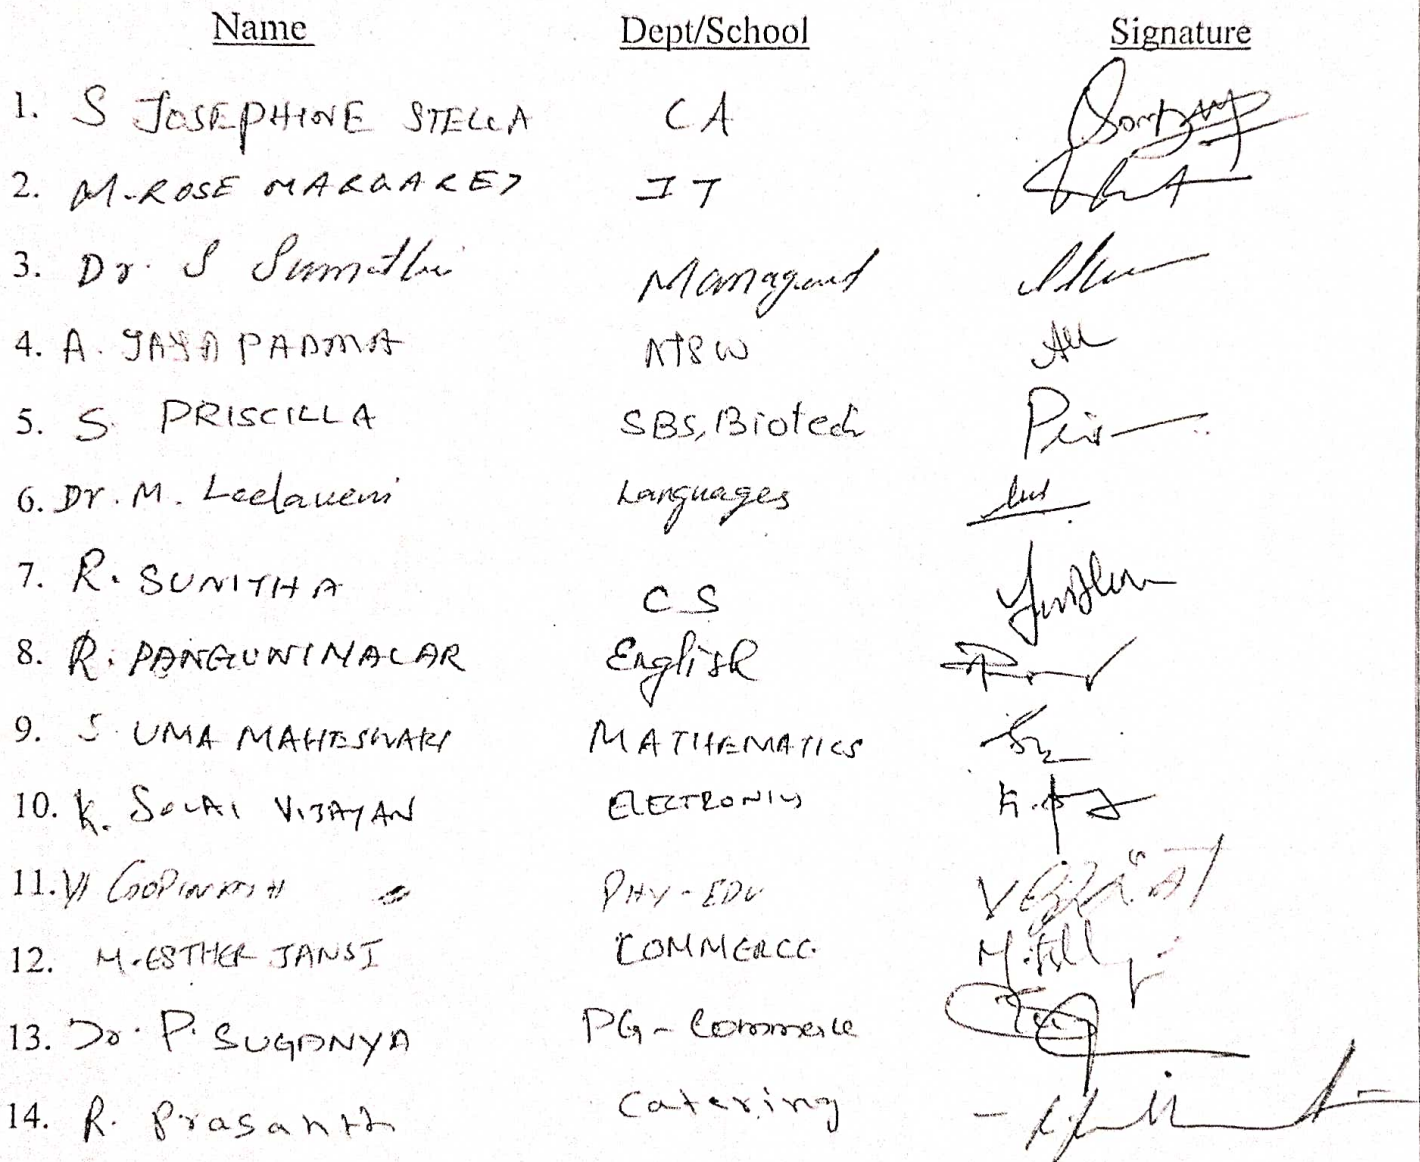 Name Dept/School Signature
1. S JOSEPHINE STELLA CA
2. M. ROSE MARGARET IT
3. Dr. S Sumathi Management
4. A. JAYA PADMA MSW
5. S. PRISCILLA SBS, Biotech
6. Dr. M. Leelaveni Languages
7. R. SUNITHA CS
8. R. PANGUNIMALAR English
9. S. UMA MAHESWARI MATHEMATICS
10. K. SOLAI VIJAYAN ELECTRONICS
11. V. GOPINATH PHY-EDU
12. M. ESTHER JANSI COMMERCE
13. Dr. P. SUGANYA PG-Commerce
14. R. Prasanth Catering